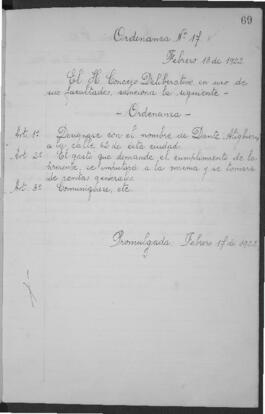 69
Ordenanza Nº 17
Febrero 13 de 1922.
El H. Concejo Deliberativo, en uso de
sus facultades, sanciona la siguiente -
- Ordenanza -
Art. 1º Desígnase con el nombre de Dante Alighieri
a la calle 62 de esta ciudad.
Art. 2º El gasto que demande el cumplimiento de la
presente, se imputará a la misma y se tomará
de rentas generales.
Art. 3º Comuníquese, etc.
Promulgada: Febrero 17 de 1922